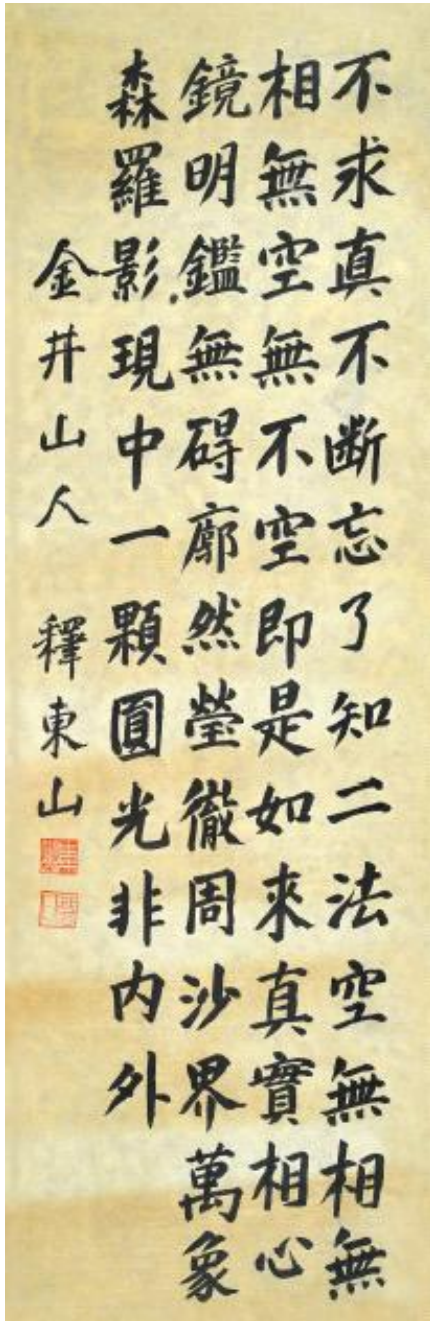 不求真不断忘了知二法空無相無
相無空無不空即是如來真實相心
鏡明鑑無碍廓然瑩徹周沙界萬象
森羅影現中一顆圓光非内外
金井山人 釋東山